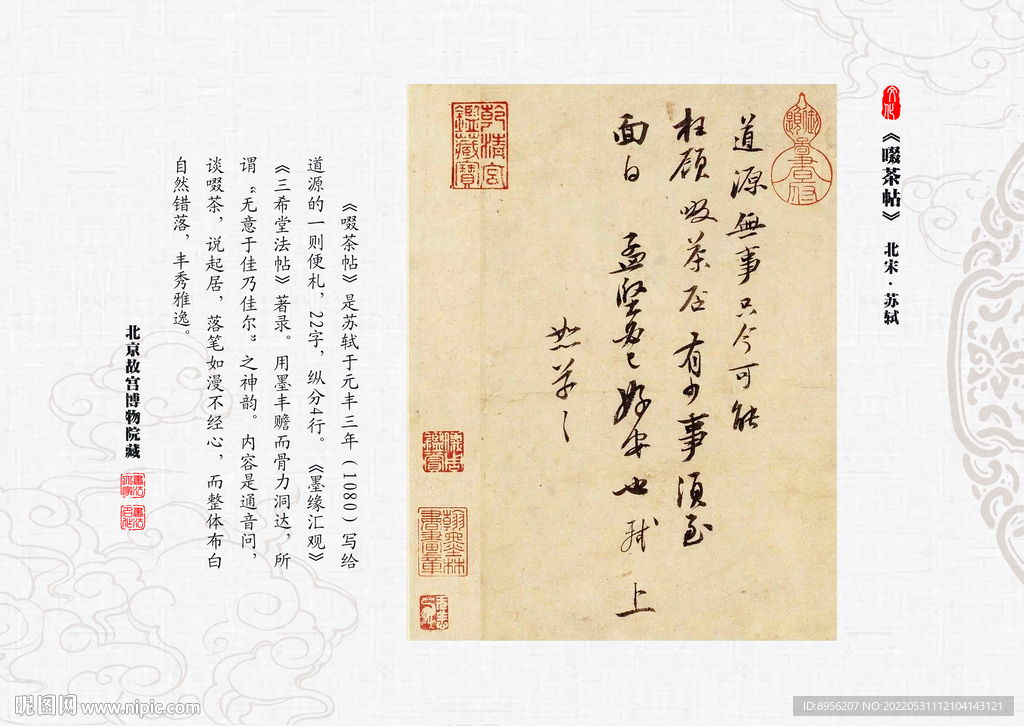 文化
《啜茶帖》 北宋·苏轼
道源無事只今可能
枉顧啜茶否有少事須至
面白 孟堅必已好安也 軾 上
恕草々
乾清宮鑑藏寶
翰墨林書畫章
《啜茶帖》是苏轼于元丰三年(1080)写给
道源的一则便札，22字，纵分4行。《墨缘汇观》
《三希堂法帖》著录。用墨丰赡而骨力洞达，所
谓“无意于佳乃佳尔”之神韵。内容是通音问，
谈啜茶，说起居，落笔如漫不经心，而整体布白
自然错落，丰秀雅逸。
北京故宫博物院藏
昵图网 www.nipic.com
ID:8956207 NO:20220531112104143121